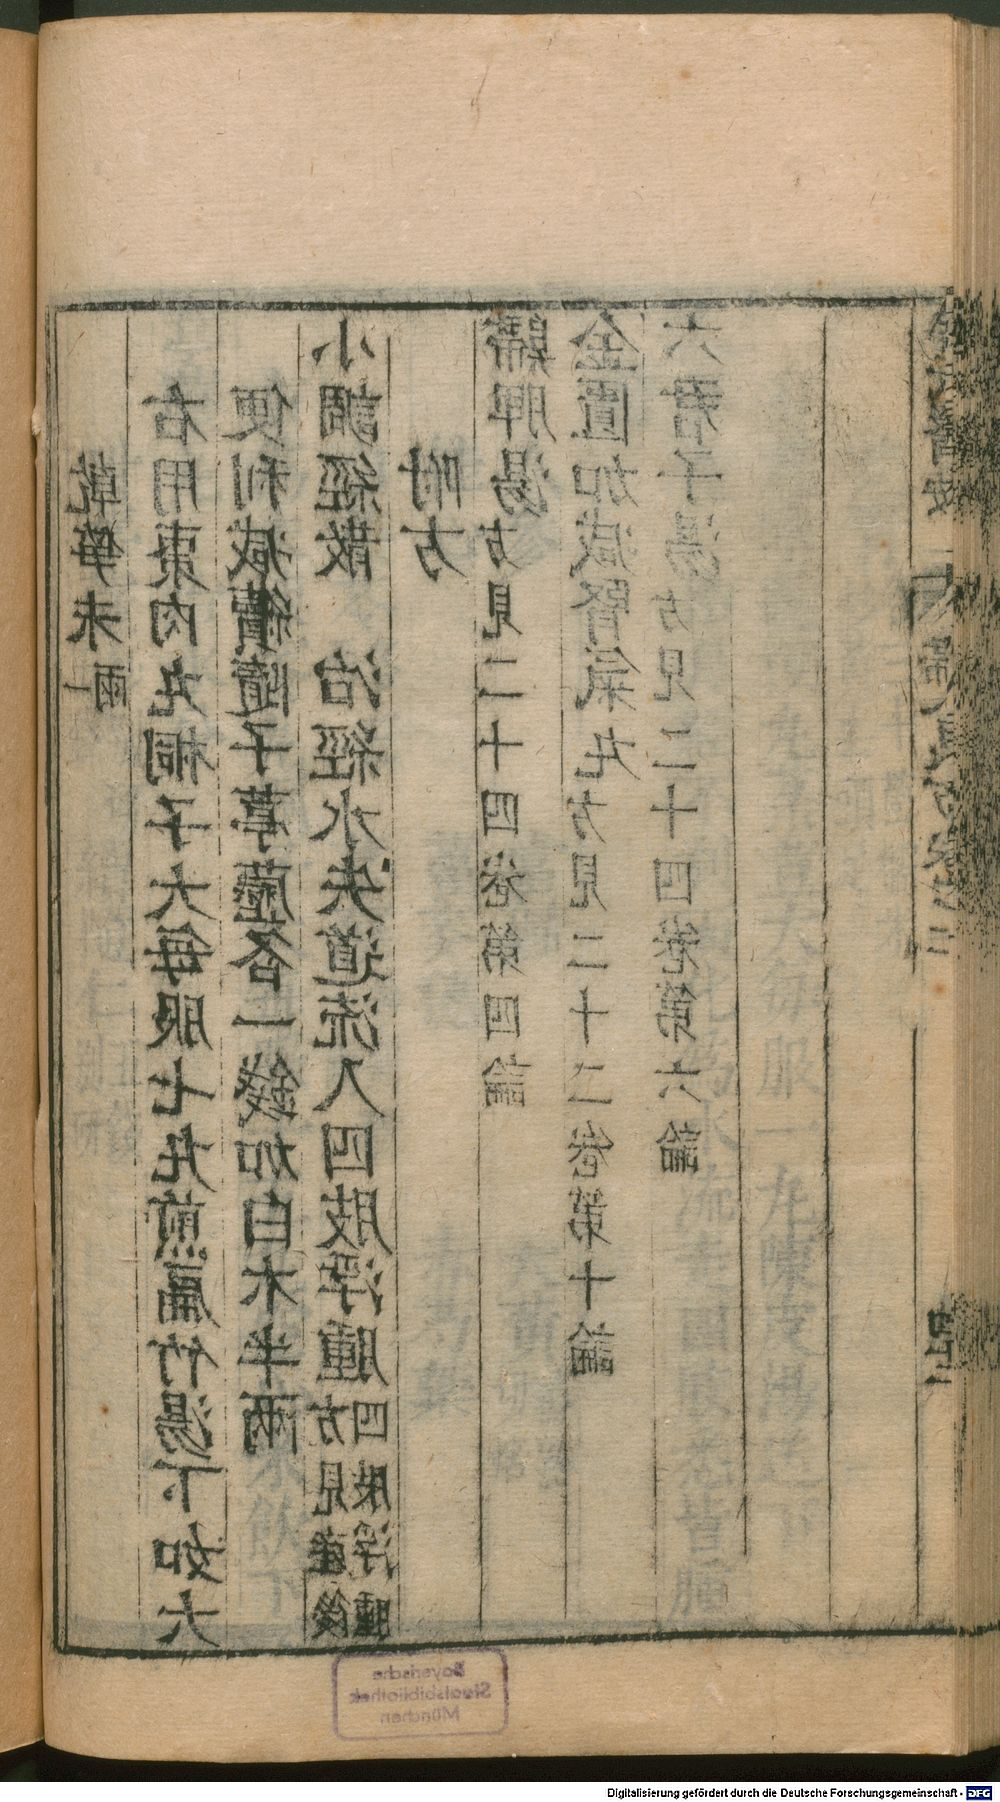 乾笋末一兩
右用棗肉丸桐子大每服七丸煎扁竹湯下如大
便利減續隨子葶藶各一錢加白朮半兩
小調經散　治經水失道流入四肢浮腫方見產後四肢浮腫
附方
歸脾湯方見二十四卷第四論
金匱加減腎氣丸方見二十二卷第十論
六君子湯方見二十四卷第六論
Bayerische
Staatsbibliothek
München
Digitalisierung gefördert durch die Deutsche Forschungsgemeinschaft - DFG